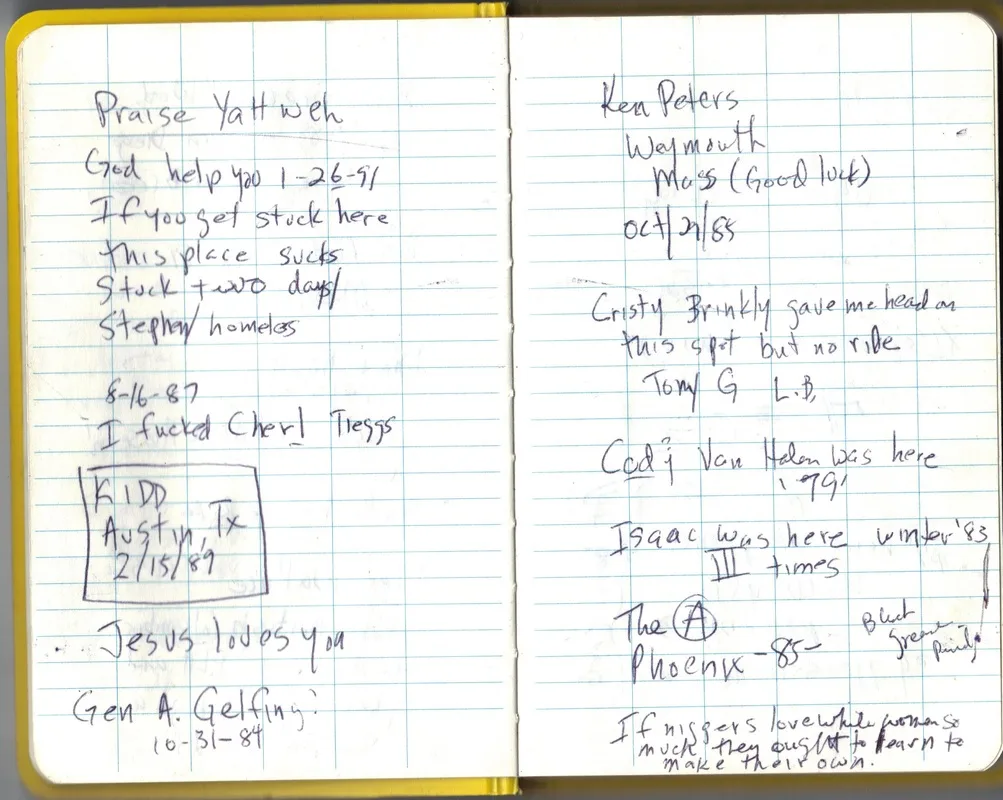 Praise YaHweh
God help you 1-26-91
If you get stuck here
this place sucks
Stuck two days/
Stephen/ homeless
8-16-87
I fucked Cheryl Tieggs
KIDD
Austin, Tx
2/15/89
Jesus loves you
Gen A. Gelfing
10-31-84
Ken Peters
Weymouth
Mass (Good luck)
Oct/29/85
Cristy Brinkly gave me head on
this spot but no ride
Tony G L.B.
Codi Van Halen was here
'79'
Isaac was here winter '83
III times
The A
Phoenix -85-
Black
grease
If niggers love white women so
much they ought to learn to
make their own.